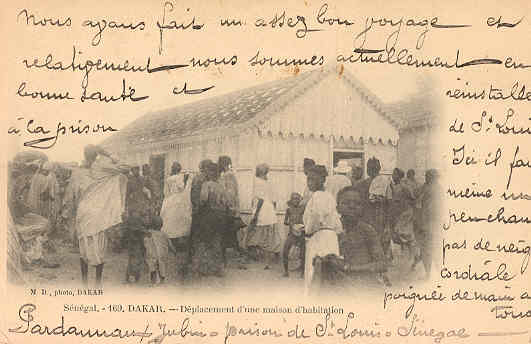 Nous avons fait un assez bon voyage et
relativement nous sommes actuellement en
bonne santé et réinstallé
à la prison de St Louis
Ici il fait
même un
peu chaud
pas de neige
cordiale
poignée de main à
tous
M. D., photo, DAKAR
Sénégal. - 169. DAKAR. — Déplacement d'une maison d'habitation
Jubin prison de St Louis Sénégal